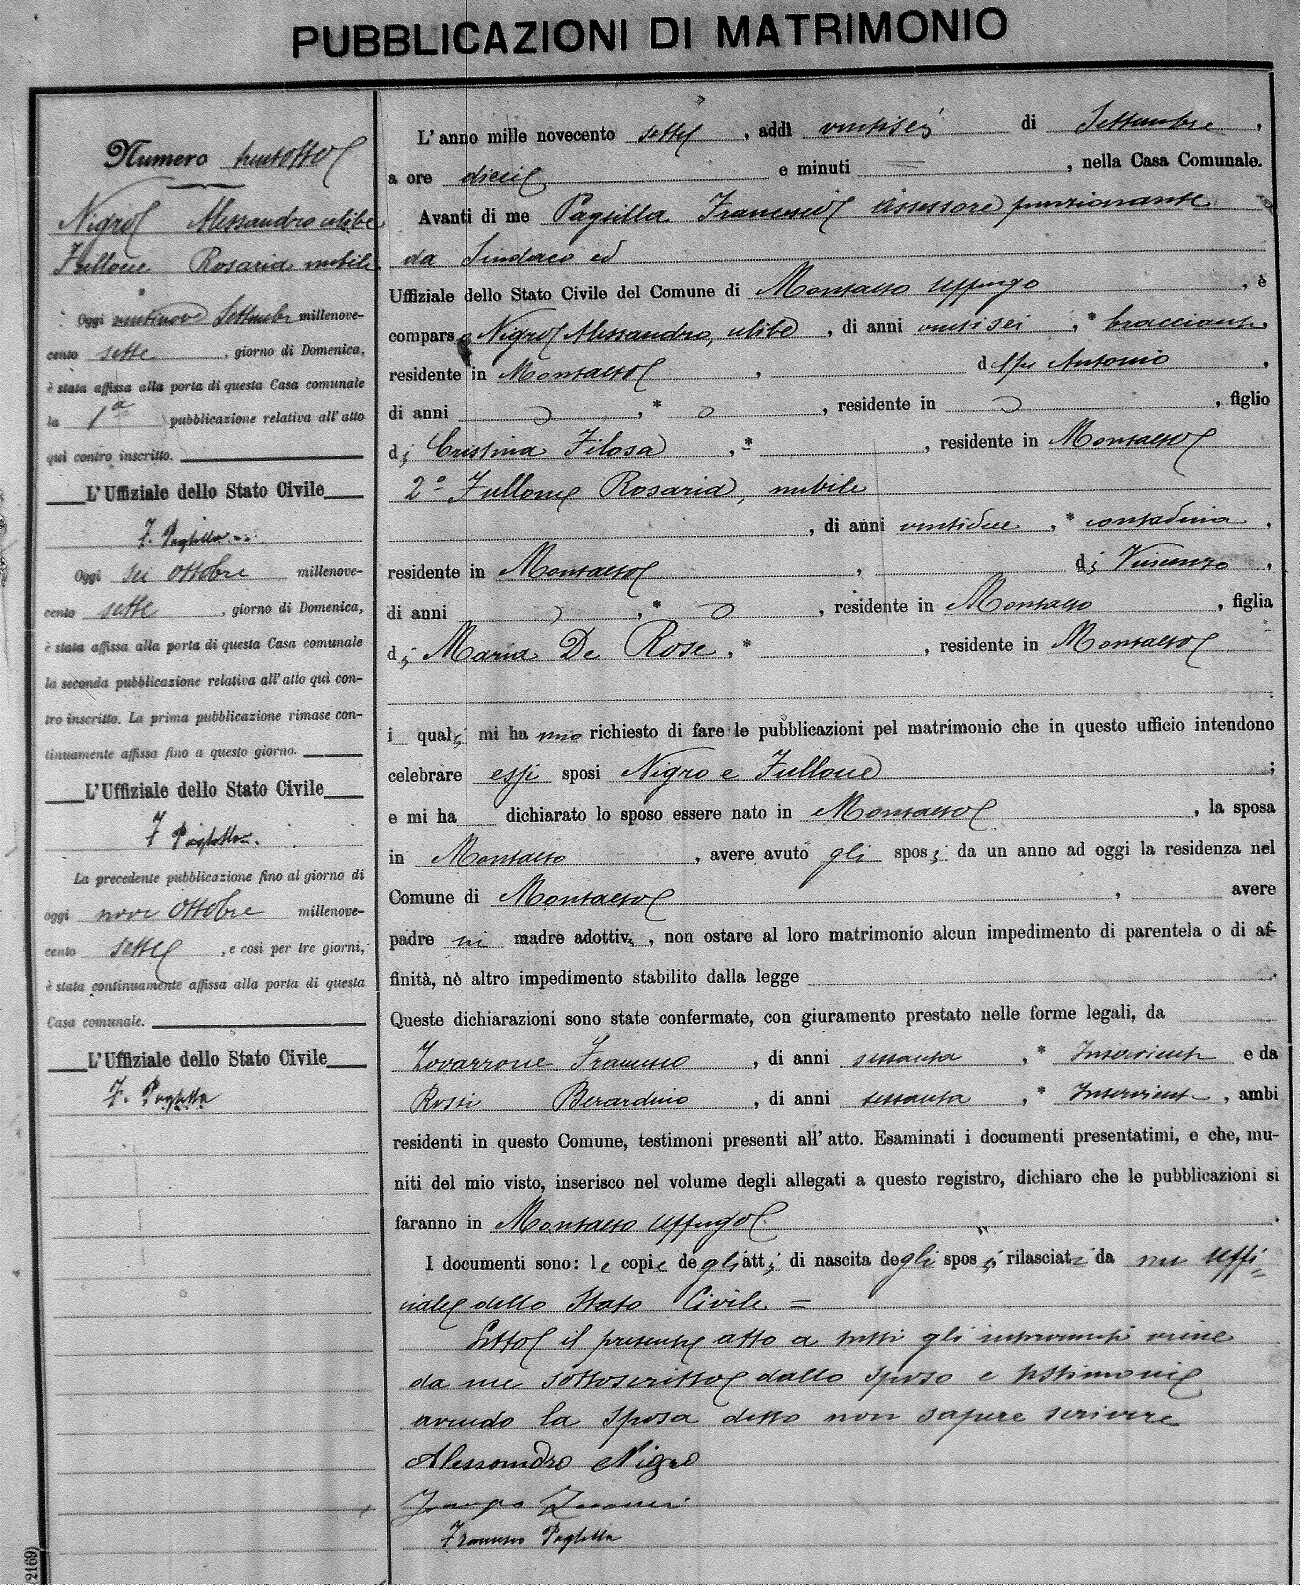 PUBBLICAZIONI DI MATRIMONIO
Numero trentotto
Nigro Alessandro celibe
Fullone Rosaria nubile
Oggi ventinove Settembre millenove-
cento sette, giorno di Domenica,
è stata affissa alla porta di questa Casa comunale
la 1ª pubblicazione relativa all'atto
quì contro inscritto.
L'Uffiziale dello Stato Civile
F. Paglilla
Oggi sei ottobre millenove-
cento sette, giorno di Domenica,
è stata affissa alla porta di questa Casa comunale
la seconda pubblicazione relativa all'atto quì con-
tro inscritto. La prima pubblicazione rimase con-
tinuamente affissa fino a questo giorno.
L'Uffiziale dello Stato Civile
F
La precedente pubblicazione fino al giorno di
oggi nove ottobre millenove-
cento sette, e così per tre giorni,
è stata continuamente affissa alla porta di questa
Casa comunale.
L'Uffiziale dello Stato Civile
F.
2169)
L'anno mille novecento sette, addì ventisei di Settembre,
a ore dieci e minuti =, nella Casa Comunale.
Avanti di me Francesco assessore funzionante
da Sindaco ed
Uffiziale dello Stato Civile del Comune di Montalto Uffugo, è
comparso Nigro Alessandro, celibe, di anni ventisei, * bracciante,
residente in Montalto, d Antonio,
di anni , * , residente in , figlio
di Cristina Filosa, * , residente in Montalto
2º Fullone Rosaria, nubile
, di anni ventidue, * contadina,
residente in Montalto, di Vincenzo,
di anni , * , residente in Montalto, figlia
di Maria De Rose, * , residente in Montalto
i quali mi hanno richiesto di fare le pubblicazioni pel matrimonio che in questo ufficio intendono
celebrare essi sposi Nigro e Fullone;
e mi ha dichiarato lo sposo essere nato in Montalto, la sposa
in Montalto, avere avuto gli sposi da un anno ad oggi la residenza nel
Comune di Montalto, avere
padre ni madre adottivi, non ostare al loro matrimonio alcun impedimento di parentela o di af-
finità, nè altro impedimento stabilito dalla legge.
Queste dichiarazioni sono state confermate, con giuramento prestato nelle forme legali, da
di anni sessanta, * Inserviente e da
Rossi Berardino, di anni sessanta, * Inserviente, ambi
residenti in questo Comune, testimoni presenti all'atto. Esaminati i documenti presentatimi, e che, mu-
niti del mio visto, inserisco nel volume degli allegati a questo registro, dichiaro che le pubblicazioni si
faranno in Montalto Uffugo.
I documenti sono: le copie degli atti di nascita degli sposi rilasciate da me Uffi=
ciale dello Stato Civile =
Letto il presente atto a tutti gli intervenuti viene
da me sottoscritto dallo sposo e testimonie
avendo la sposa detto non sapere scrivere
Alessandro Nigro
Francesco